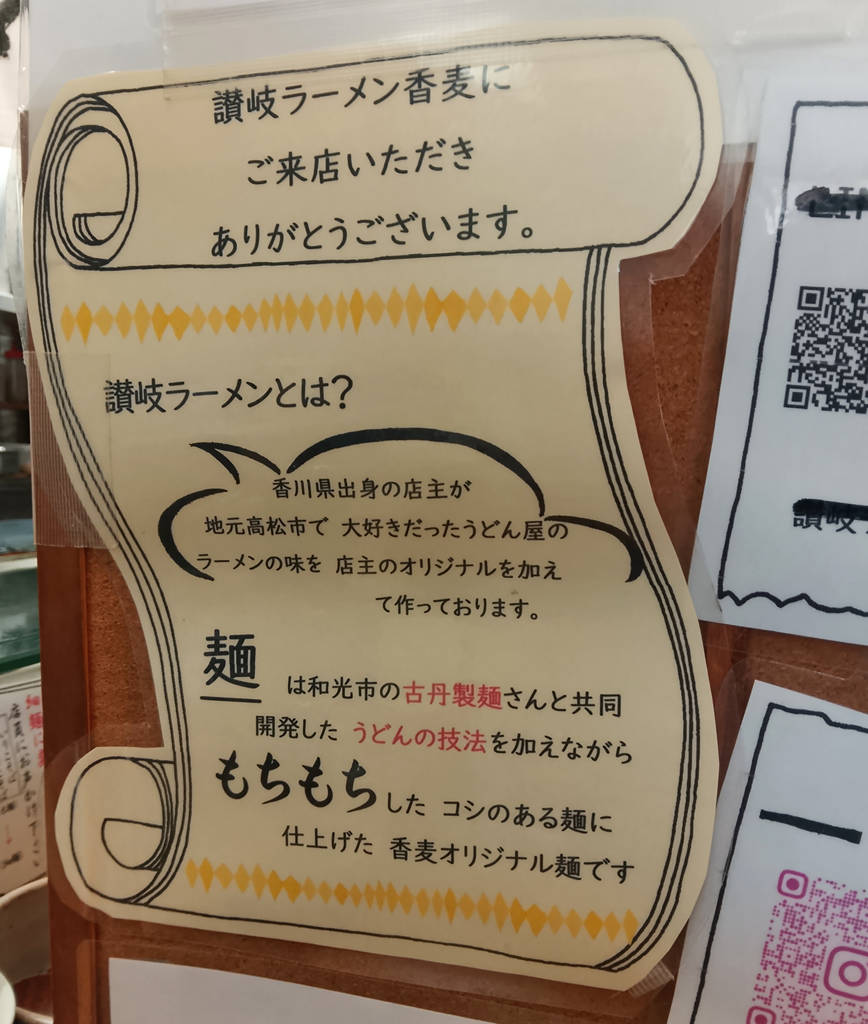 讃岐ラーメン香麦に
ご来店いただき
ありがとうございます。
讃岐ラーメンとは?
香川県出身の店主が
地元高松市で 大好きだったうどん屋の
ラーメンの味を 店主のオリジナルを加え
て作っております。
麺 は和光市の古丹製麺さんと共同
開発した うどんの技法を加えながら
もちもちした コシのある麺に
仕上げた 香麦オリジナル麺です
讃岐